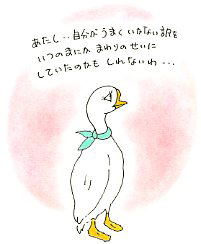 あたし‥自分がうまくいかない訳を
いつのまにか まわりのせいに
していたのかも しれないわ・・・